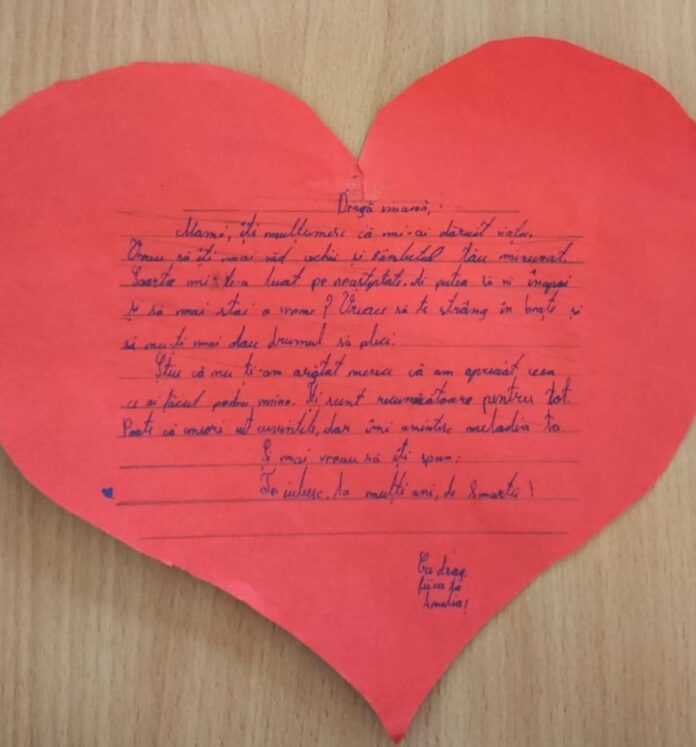 Dragă mamă,
Mami, îți mulțumesc că mi-ai dăruit viața.
Vreau să îți mai văd ochii și zâmbetul tău minunat.
Soarta mi te-a luat pe neașteptate. Ai putea să vi înapoi
și să mai stai o vreme? Vreau să te strâng în brațe și
să nu-ți mai dau drumul să pleci.
Știu că nu ți-am arătat mereu că am apreciat ceea
ce ai făcut pentru mine. Îți sunt recunoscătoare pentru tot.
Poate că uneori uit cuvintele, dar îmi amintesc melodia ta.
Și mai vreau să îți spun:
Te iubesc. La mulți ani, de 8 martie!
Cu drag,
fiica ta
Amalia!